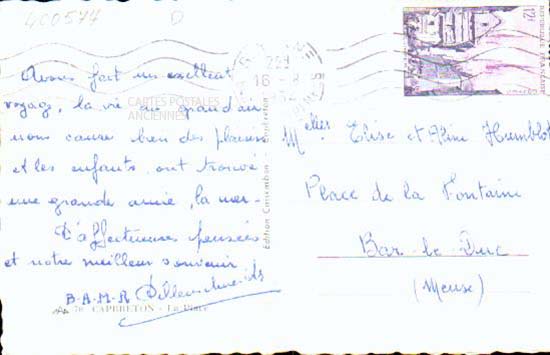 4C0574
D
Avons fait un excellent
voyage, la vie au grand air
nous cause bien des plaisirs
et les enfants ont trouvé
une grande amie, la mer.
D'affectueuses pensées
et notre meilleur souvenir
B-A-M-R
CARTES POSTALES
ANCIENNES
Edition
16-8
12f
Melles Elise et Aline Humblot
Place de la Fontaine
Bar-le-Duc
(Meuse)
78 CAPBRETON - La Place